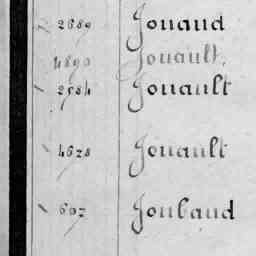 2689 Jouaud
4890 Jouault
2584 Jouault
4628 Jouault
607 Joubaud